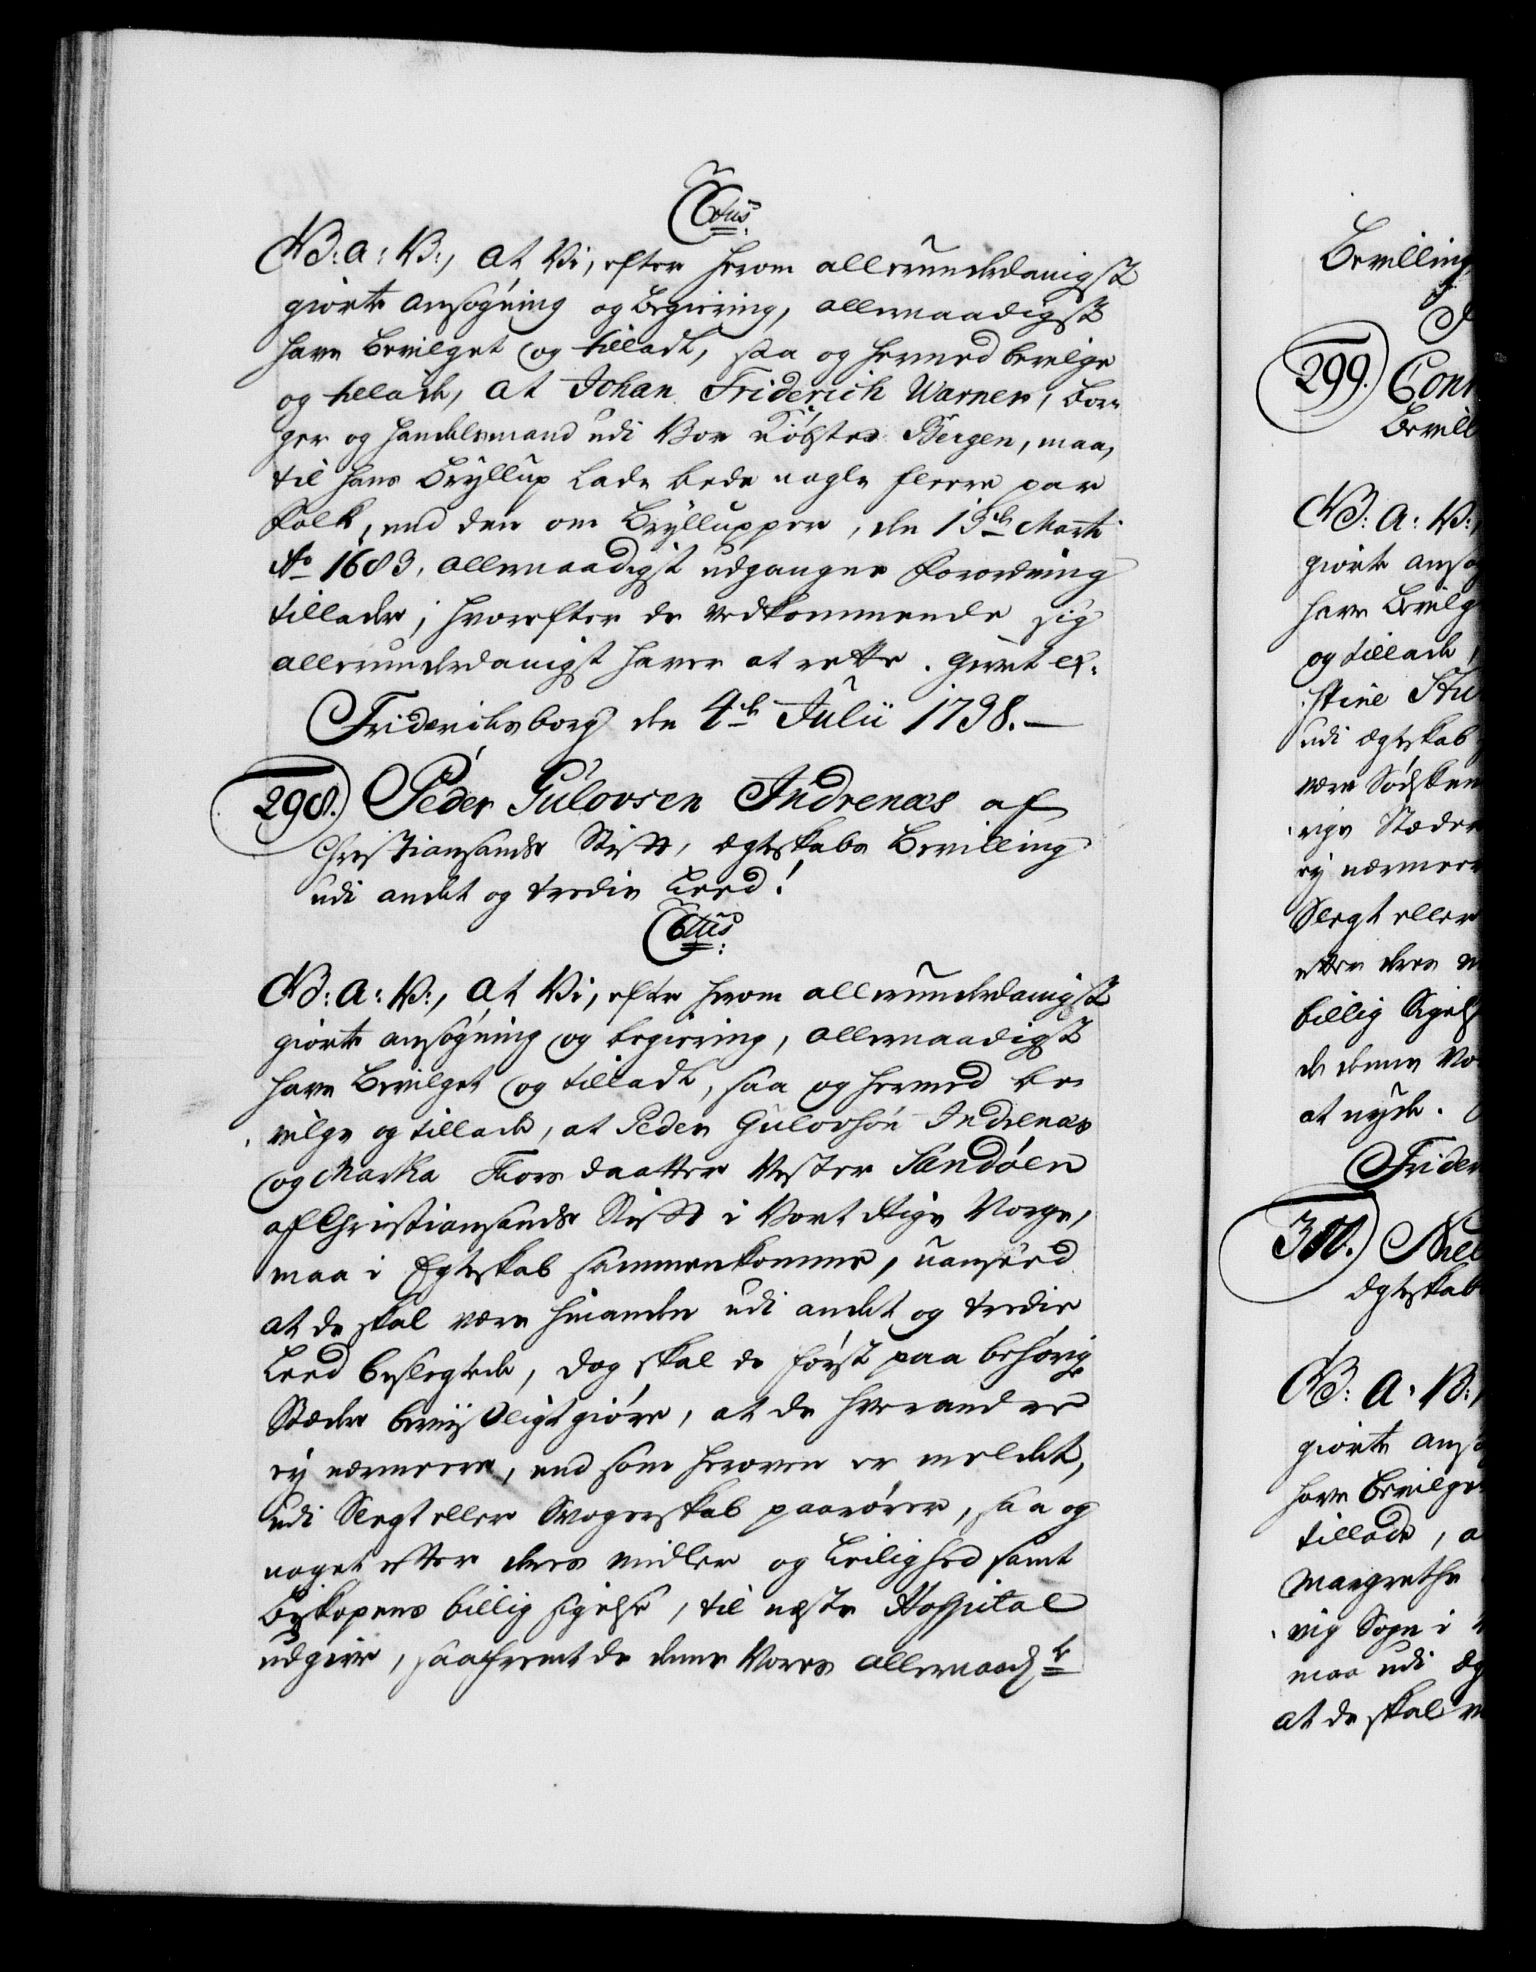 C6tus
G: A: V:, At Vi, efter herom allerunderdanigst
giorte ansøgning og begiering, allernaadigst
have bevilget og tilladt, saa og hermed bevilge
og tillade, at Johan Friderich Warner, bor-
ger og handelsmand udi Vor Kiøbsted Bergen, maa,
til hans Bryllup lade bede nogle fleere par
folk, end den om Bryllupper, de 13de Marti
Ao 1683, allernaadigst udgangne forordning
tillader; hvorefter de vedkommende sig
allerunderdanigst haver at rette. Givet &.
Friderichsborg den 4de Julii 1738. —
298. Peder Gulovsen Indrenæs af
Christiansands Stift, Ægteskabs Bevilling
udi andet og tredie Leed!
C6tus
G: A: V:, At Vi, efter herom allerunderdanigst
giorte ansøgning og begiering, allernaadigst
have bevilget og tilladt, saa og hermed be-
vilge og tillade, at Peder Gulovsøn Indrenæs
og Martha Tiors daatter Vester Sandøen
af Christiansands Stift i Vort Rige Norge,
maa i Egteskab sammenkomme, uanseed
at de skal være hinanden udi andet og tredie
Leed beslegtede, dog skal de først paa behørige
Stæder beviisligtgiøre, at de hverandre
ey nærmere, end som herover er meldet,
udi Slegt eller Svogerskab paarører, saa og
noget efter deres midler og Leilighed samt
Biskopens billig sigelse, til neste Hospital
udgive, saafremt de denne Vores allernaadste
Bevilling
299. Con
Bevill
G: A: V:,
giorte ansø
have bevilg
og tillade,
stine
udi Ægteskab
være Sødsken
rige Stæder
ey nærmere
Slegt eller
efter deres
billig Sigels
de denne Vo
at nyde.
Frider
300. Niel
Ægteskab
G: A: V:,
giorte ansø
have bevilge
tillade, a
Margrethe
vig Sogn i
maa udi Æg
at de skal v